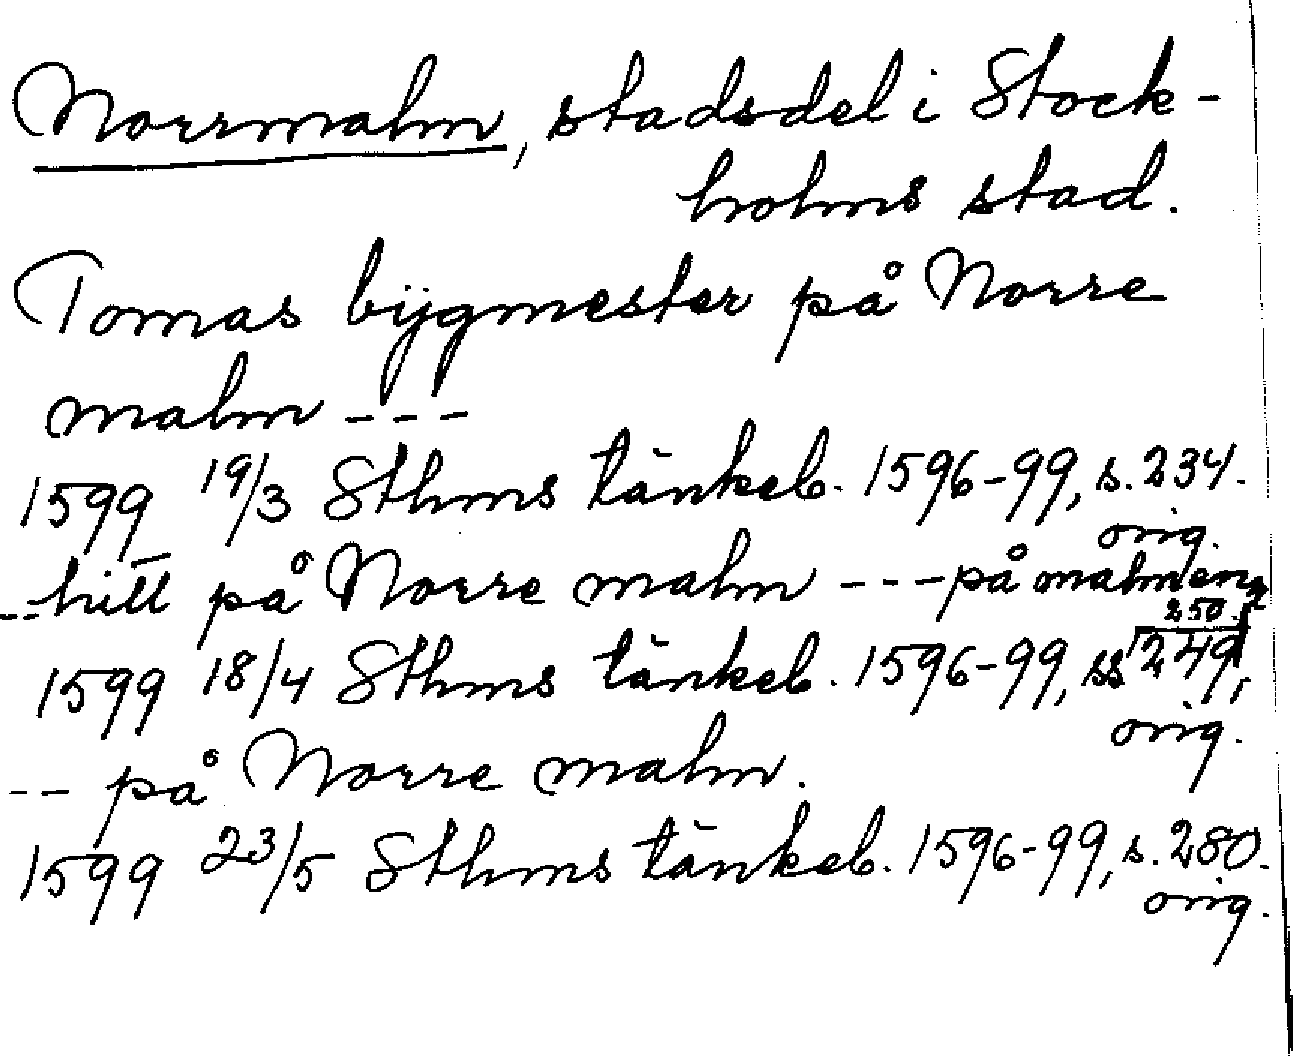 Norrmalm, stadsdel i Stock-
holms stad.
Tomas bijgmester på Norre
malm ---
1599 19/3 Sthms tänkeb. 1596-99, s. 234.
orig.
-- hitt på Norre malm --- på malmen
250.
1599 18/4 Sthms tänkeb. 1596-99, ss 249,
orig.
-- på Norre malm.
1599 23/5 Sthms tänkeb. 1596-99, s. 280.
orig.